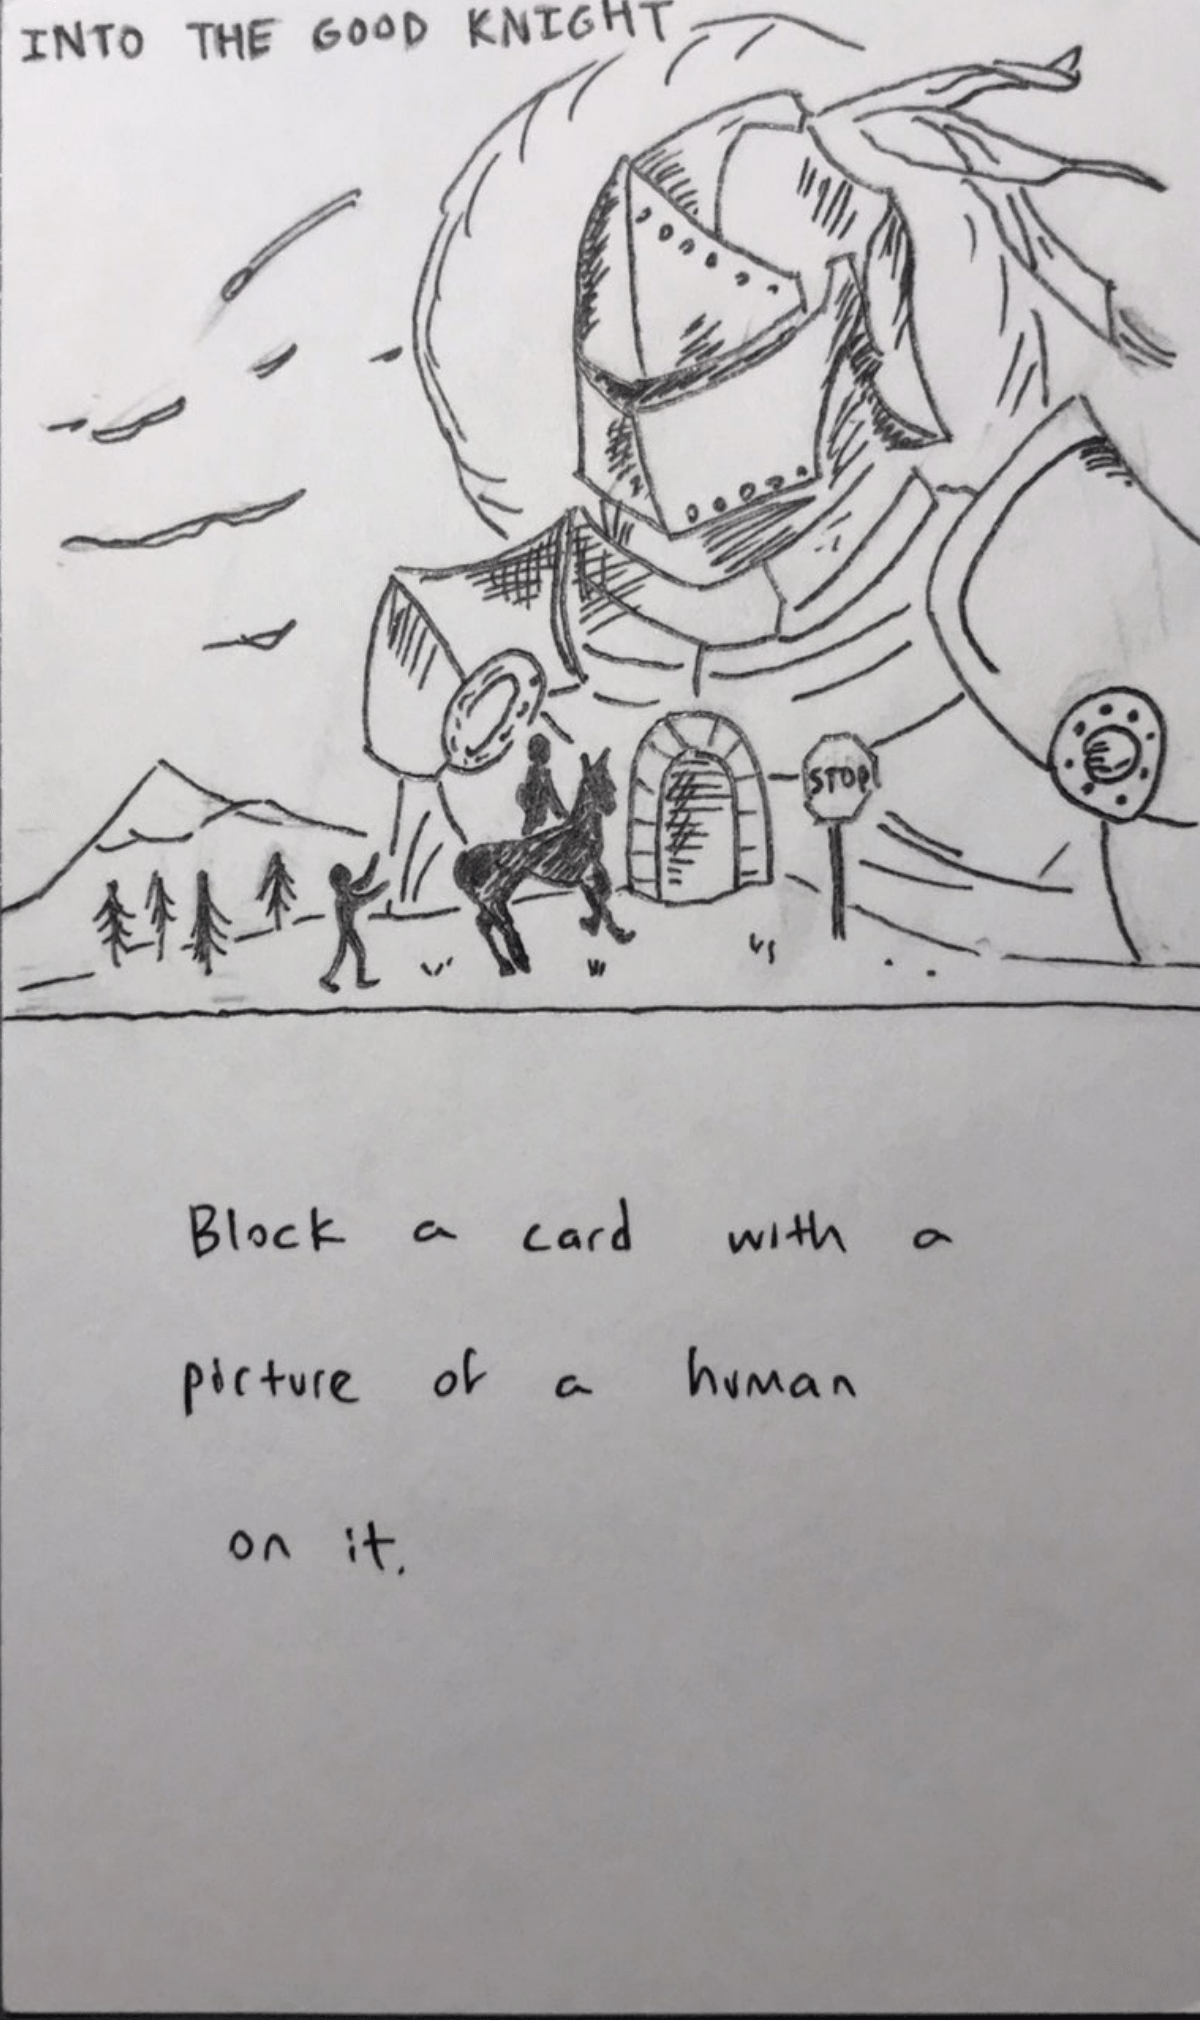 INTO THE GOOD KNIGHT
STOP
Block a card with a
picture of a human
on it.